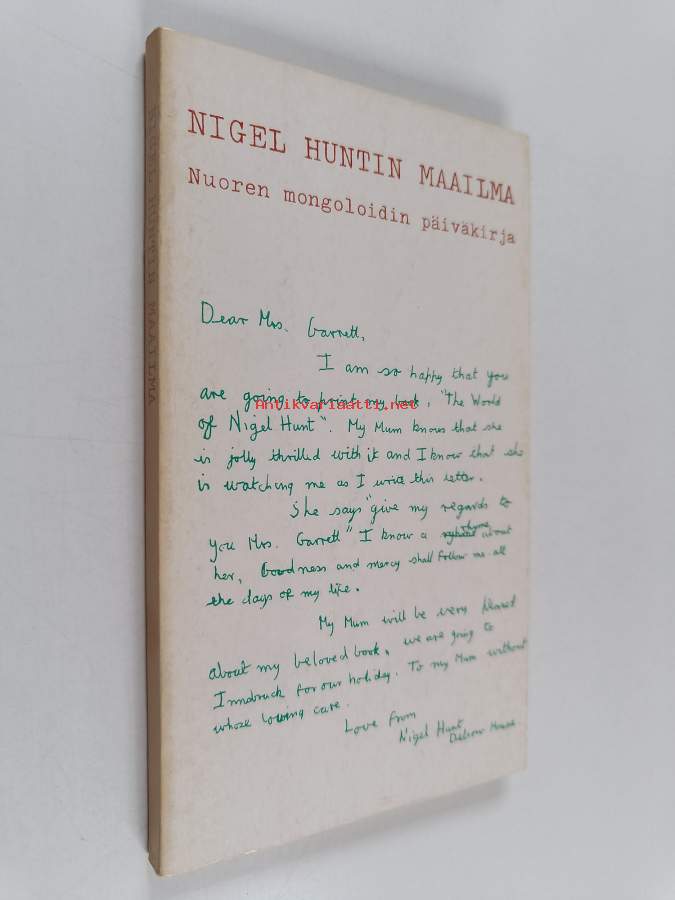 NIGEL HUNTIN MAAILMA
Nuoren mongoloidin päiväkirja
Dear Mrs. Garrett,
I am so happy that you
are going to print my book, "The World
of Nigel Hunt". My Mum knows that she
is jolly thrilled with it and I know that she
is watching me as I write this letter.
She says "give my regards to
you Mrs. Garrett" I know a rhyme about
her, Goodness and mercy shall follow me all
the days of my life.
My Mum will be very pleased
about my beloved book, we are going to
Innsbruck for our holiday. To my Mum without
whose loving care.
Love from
Nigel Hunt
House.
Antikvariaatti.net
NIGEL HUNTIN MAAILMA